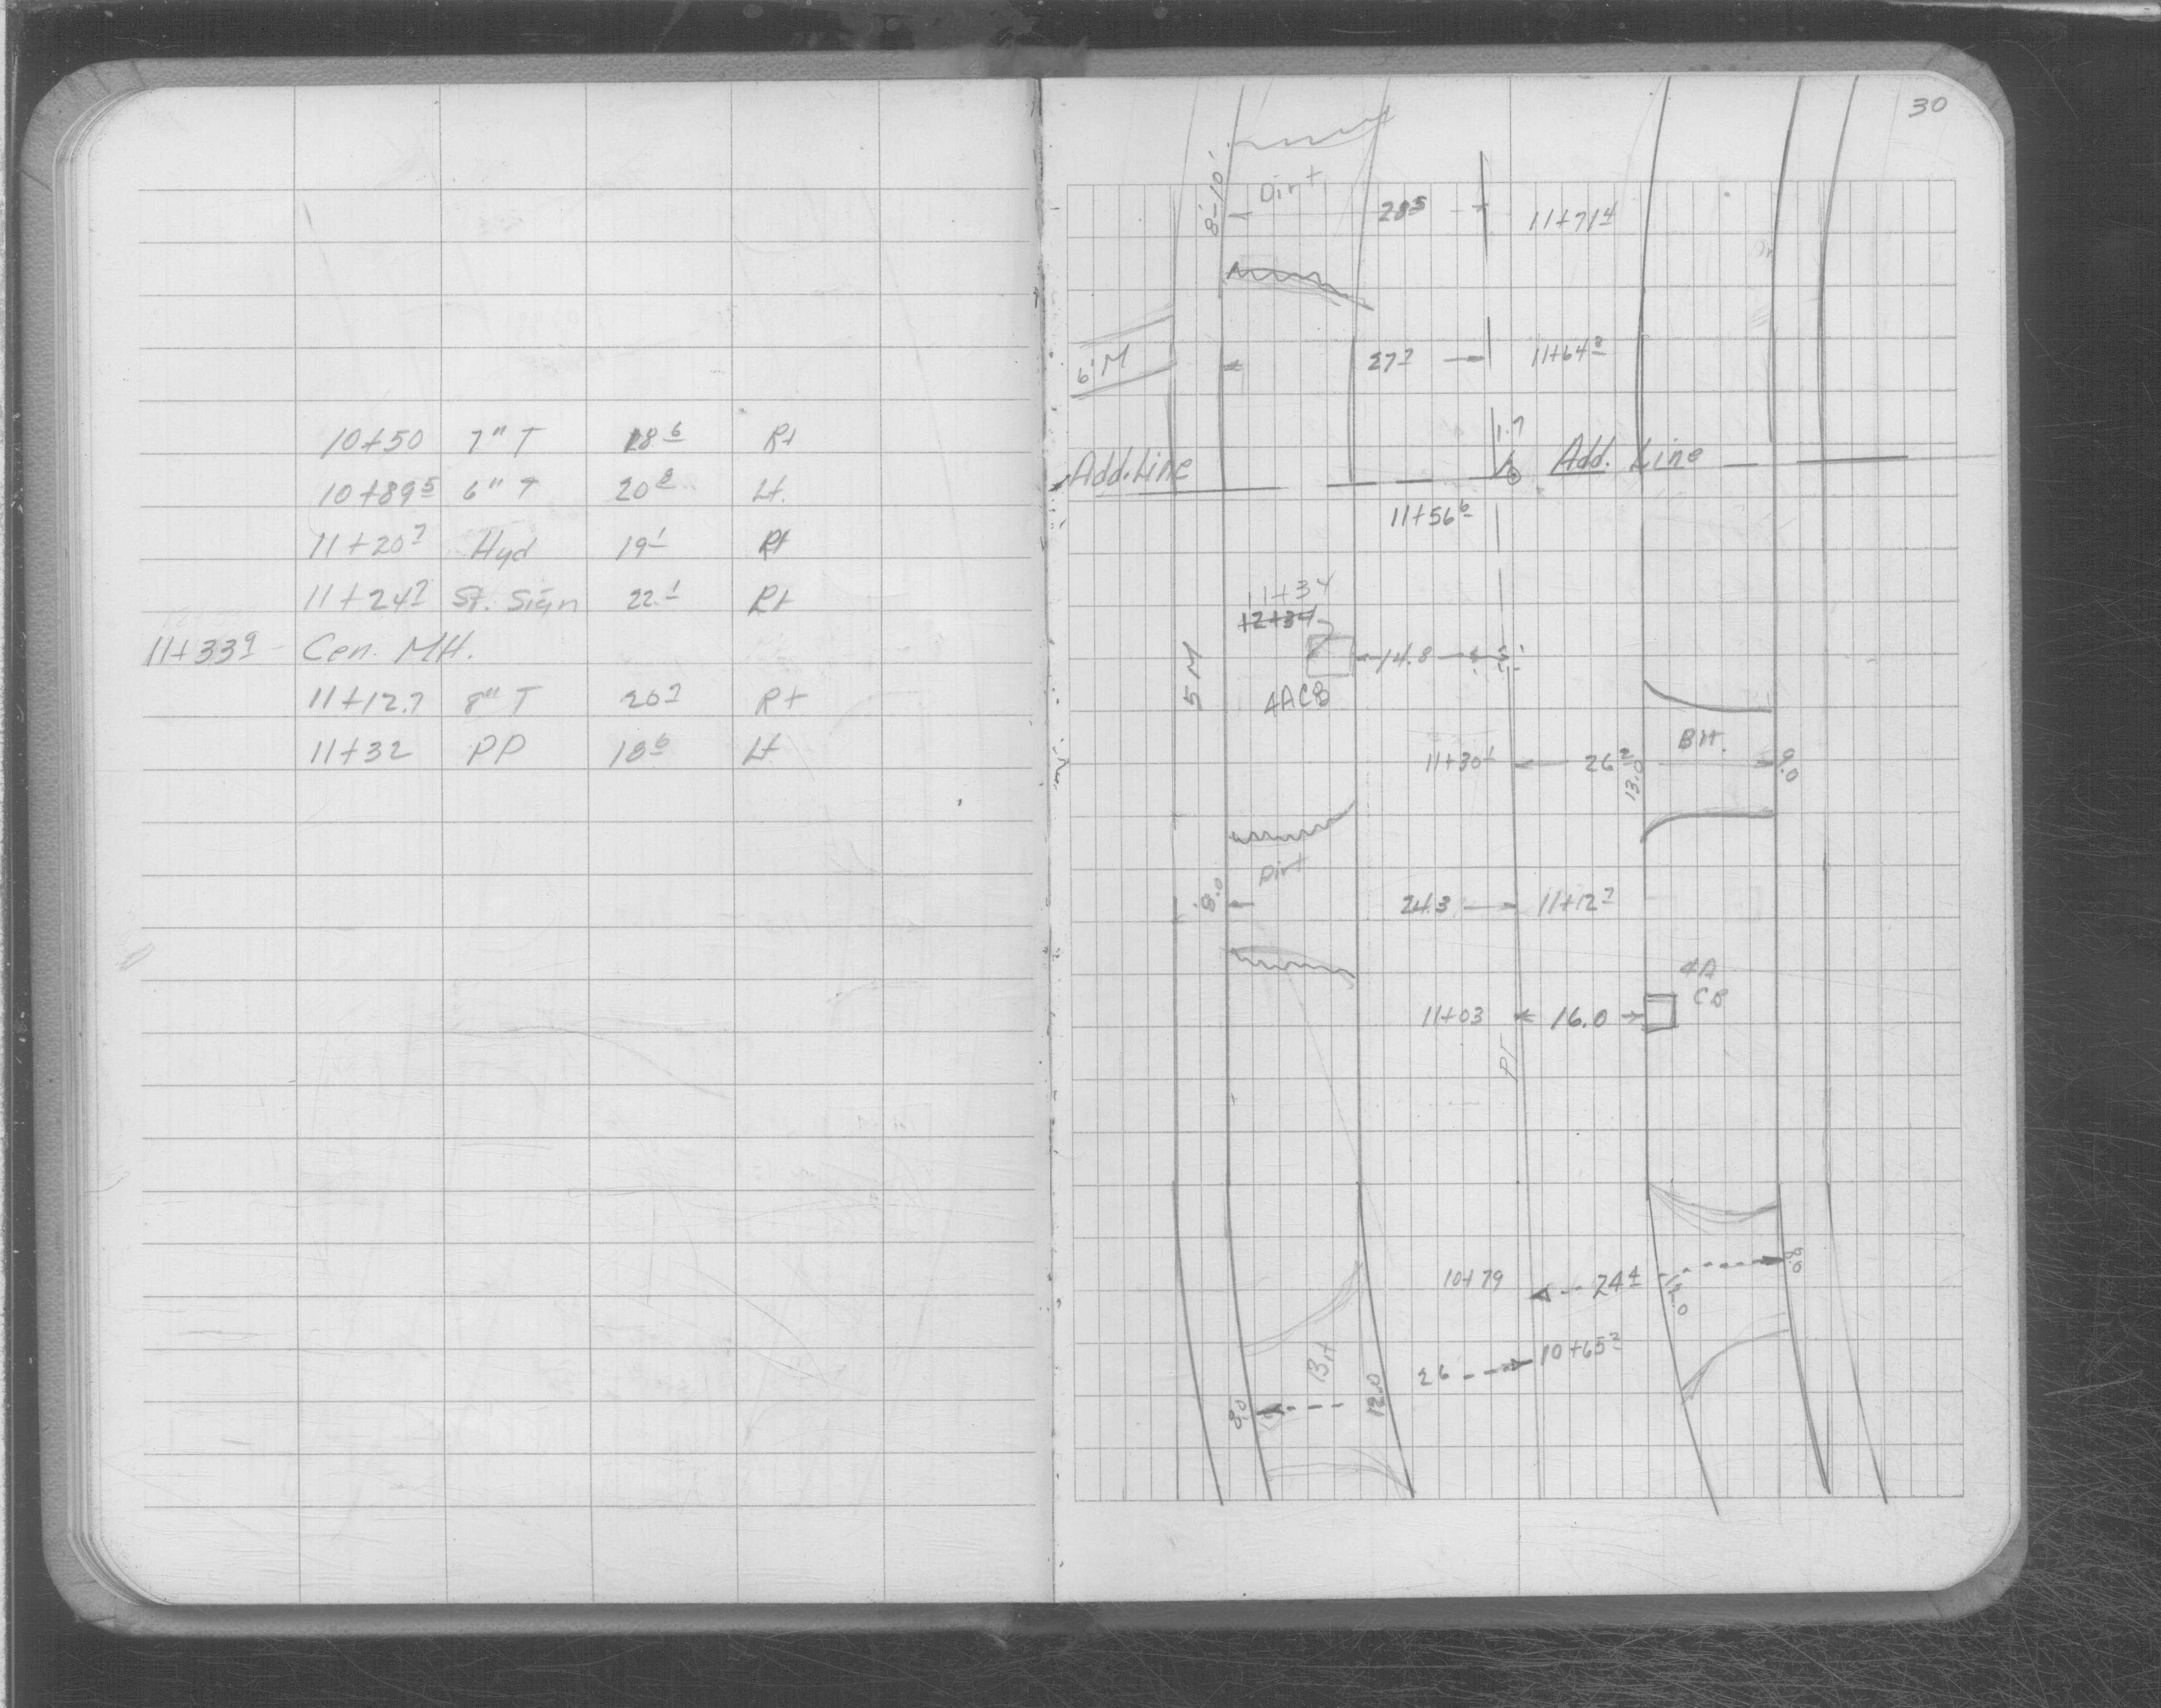 10+50 7" T 18 6 Rt
10+89 5 6" T 20 8 Lt.
11+20 7 Hyd 19 1 Rt
11+24 7 St. Sign 22 1 Rt
11+33 9 - Cen. MH.
11+12.7 8" T 20 7 Rt
11+32 PP 18 6 Lt
30
8'-10'
Dirt
28 5
11+71 4
6' M
27 7
11+64 8
1.7
Add. Line
Add. Line
11+56 6
11+34
12+34
14.8
5 M
4ACB
11+30 1
26 2
13.0
Bit.
9.0
Dirt
8.0
24.3
11+12 7
4A
CB
11+03
16.0
PT
10+79
24 4
12.0
8.0
10+65 2
26
Bit
12.0
8.0